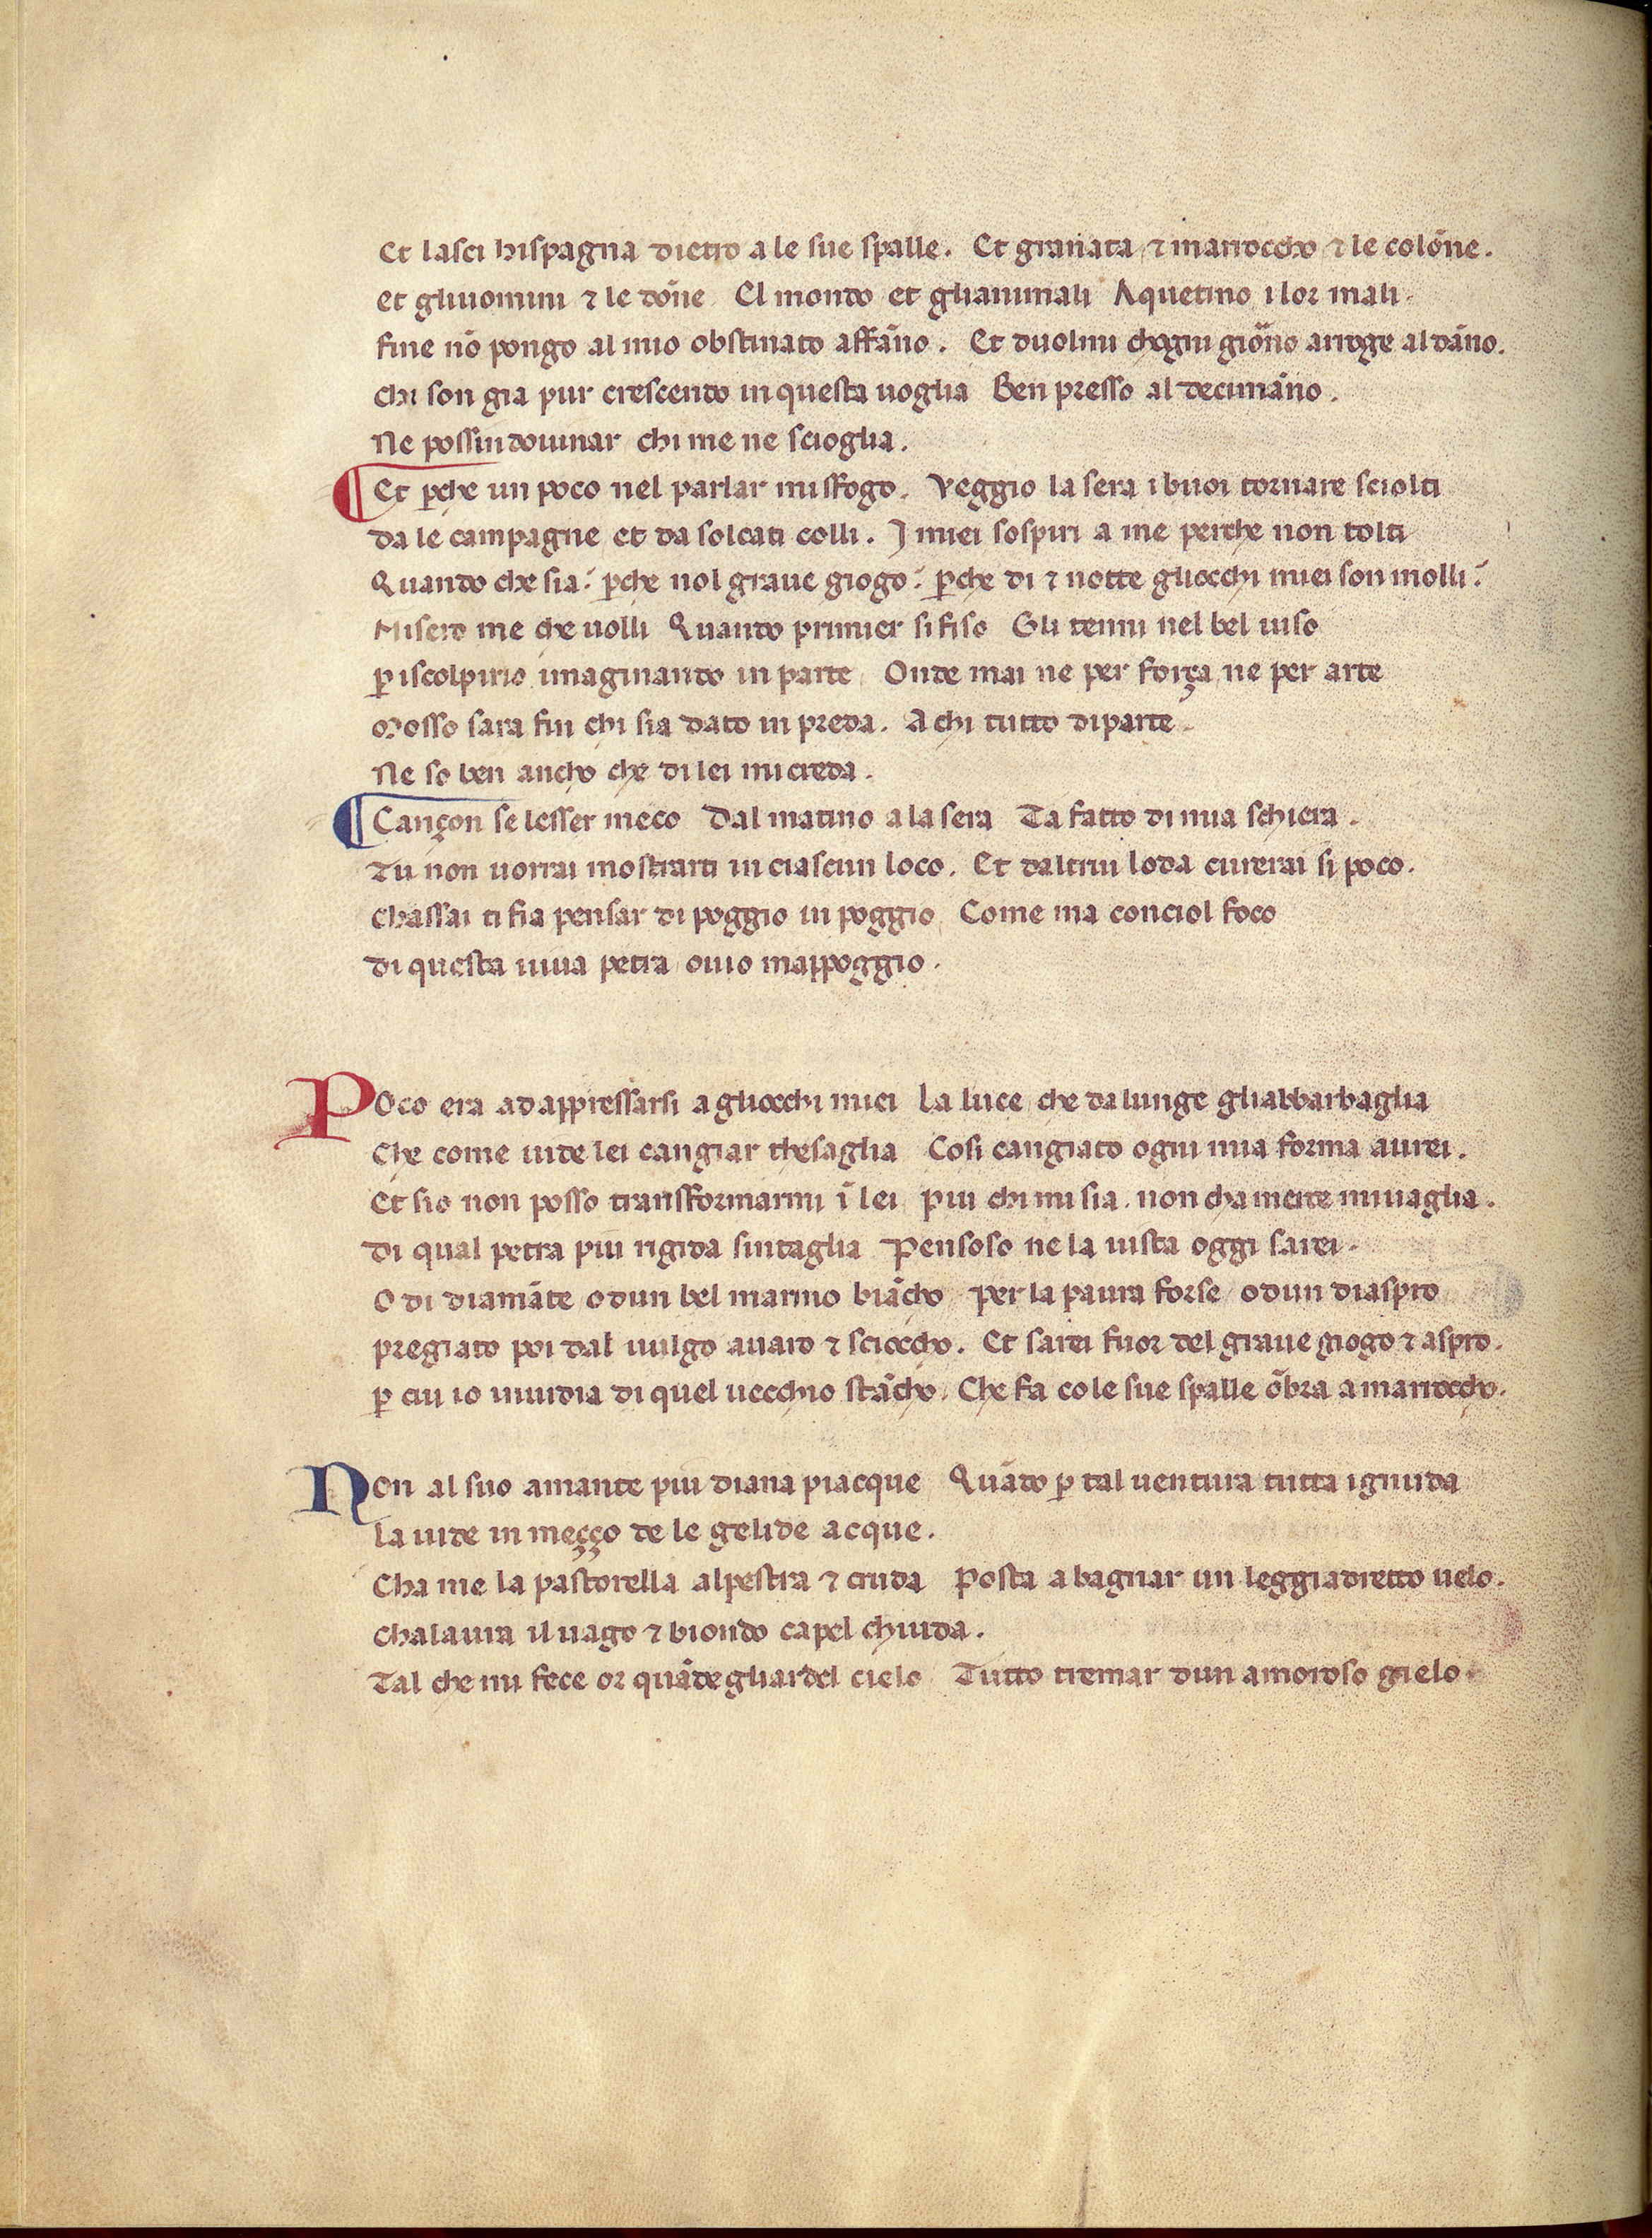 Et lasci hispagna dietro a le sue spalle. Et granata ⁊ marroccho ⁊ le colõne.
et gliuomini ⁊ le dõne El mondo et glianimali Aquetino i lor mali.
fine nõ pongo al mio obstinato affãno. Et duolmi chogni giorno arroge al dãno.
chi son gia pur crescendo in questa uoglia Ben presso al decimãno.
Ne possindouinar chi me ne scioglia.
¶ Et ꝑche un poco nel parlar mi sfogo. Veggio la sera i buoi tornare sciolti
da le campagne et da solcati colli. I miei sospiri a me perche non tolti
Quando che sia? ꝑche nol graue giogo? ꝑche di ⁊ notte gliocchi miei son molli?
Misero me che uolli Quando primier si fiso Gli tenni nel bel uiso
ꝑ iscolpirlo imaginando in parte Onde mai ne per força ne per arte
Mosso sara fin chi sia dato in preda. A chi tutto diparte.
Ne so ben ancho che di lei mi creda.
¶ Cançon se lesser meco Dal matino a la sera Ta fatto di mia schiera.
Tu non uorrai mostrarti in ciascun loco. Et daltrui loda curerai si poco.
chassai ti fia pensar di poggio in poggio Come ma conciol foco
di questa uiua petra ouio mappoggio.
Poco era ad appressarsi a gliocchi miei La luce che da lunge gliabbarbaglia
Che come uide lei cangiar thesaglia Cosi cangiato ogni mia forma aurei.
Et sio non posso transformarmi ĩ lei piu chi mi sia non cha mercè mi uaglia.
di qual petra piu rigida sintaglia Pensoso ne la uista oggi sarei.
O di diamãte o dun bel marmo biãcho per la paura forse o dun diaspro
pregiato poi dal uulgo auaro ⁊ scioccho. Et sarei fuor del graue giogo ⁊ aspro.
ꝑ cui io inuidia di quel uecchio stãcho. Che fa co le sue spalle õbra a marroccho.
Non al suo amante piu diana piacque Quãdo ꝑ tal uentura tutta ignuda
la uide in meçço de le gelide acque.
Cha me la pastorella alpestra ⁊ cruda Posta a bagnar un leggiadretto uelo.
Chalaura il uago ⁊ biondo capel chiuda.
Tal che mi fece or quãdegliardel cielo Tutto tremar dun amoroso gielo.